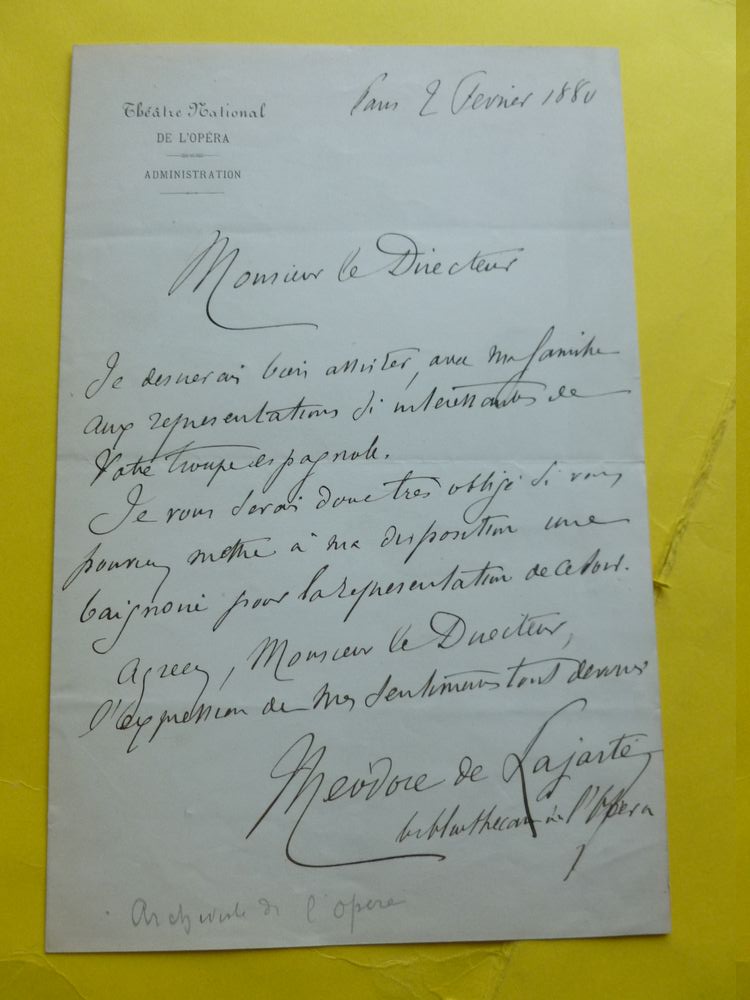 Théâtre National
DE L'OPÉRA
ADMINISTRATION
Paris 2 Fevrier 1880
Monsieur le Directeur
Je desirerais bien assister, avec ma famille
aux representations si interessantes de
Votre troupe espagnole.
Je vous serai donc très obligé si vous
pouviez mettre à ma disposition une
baignoire pour la representation de ce soir.
Agreez, Monsieur le Directeur,
l'expression de mes sentiments tout devoués
Theodore de Lajarte
bibliothecaire de l'Opera
Archiviste de l'opera